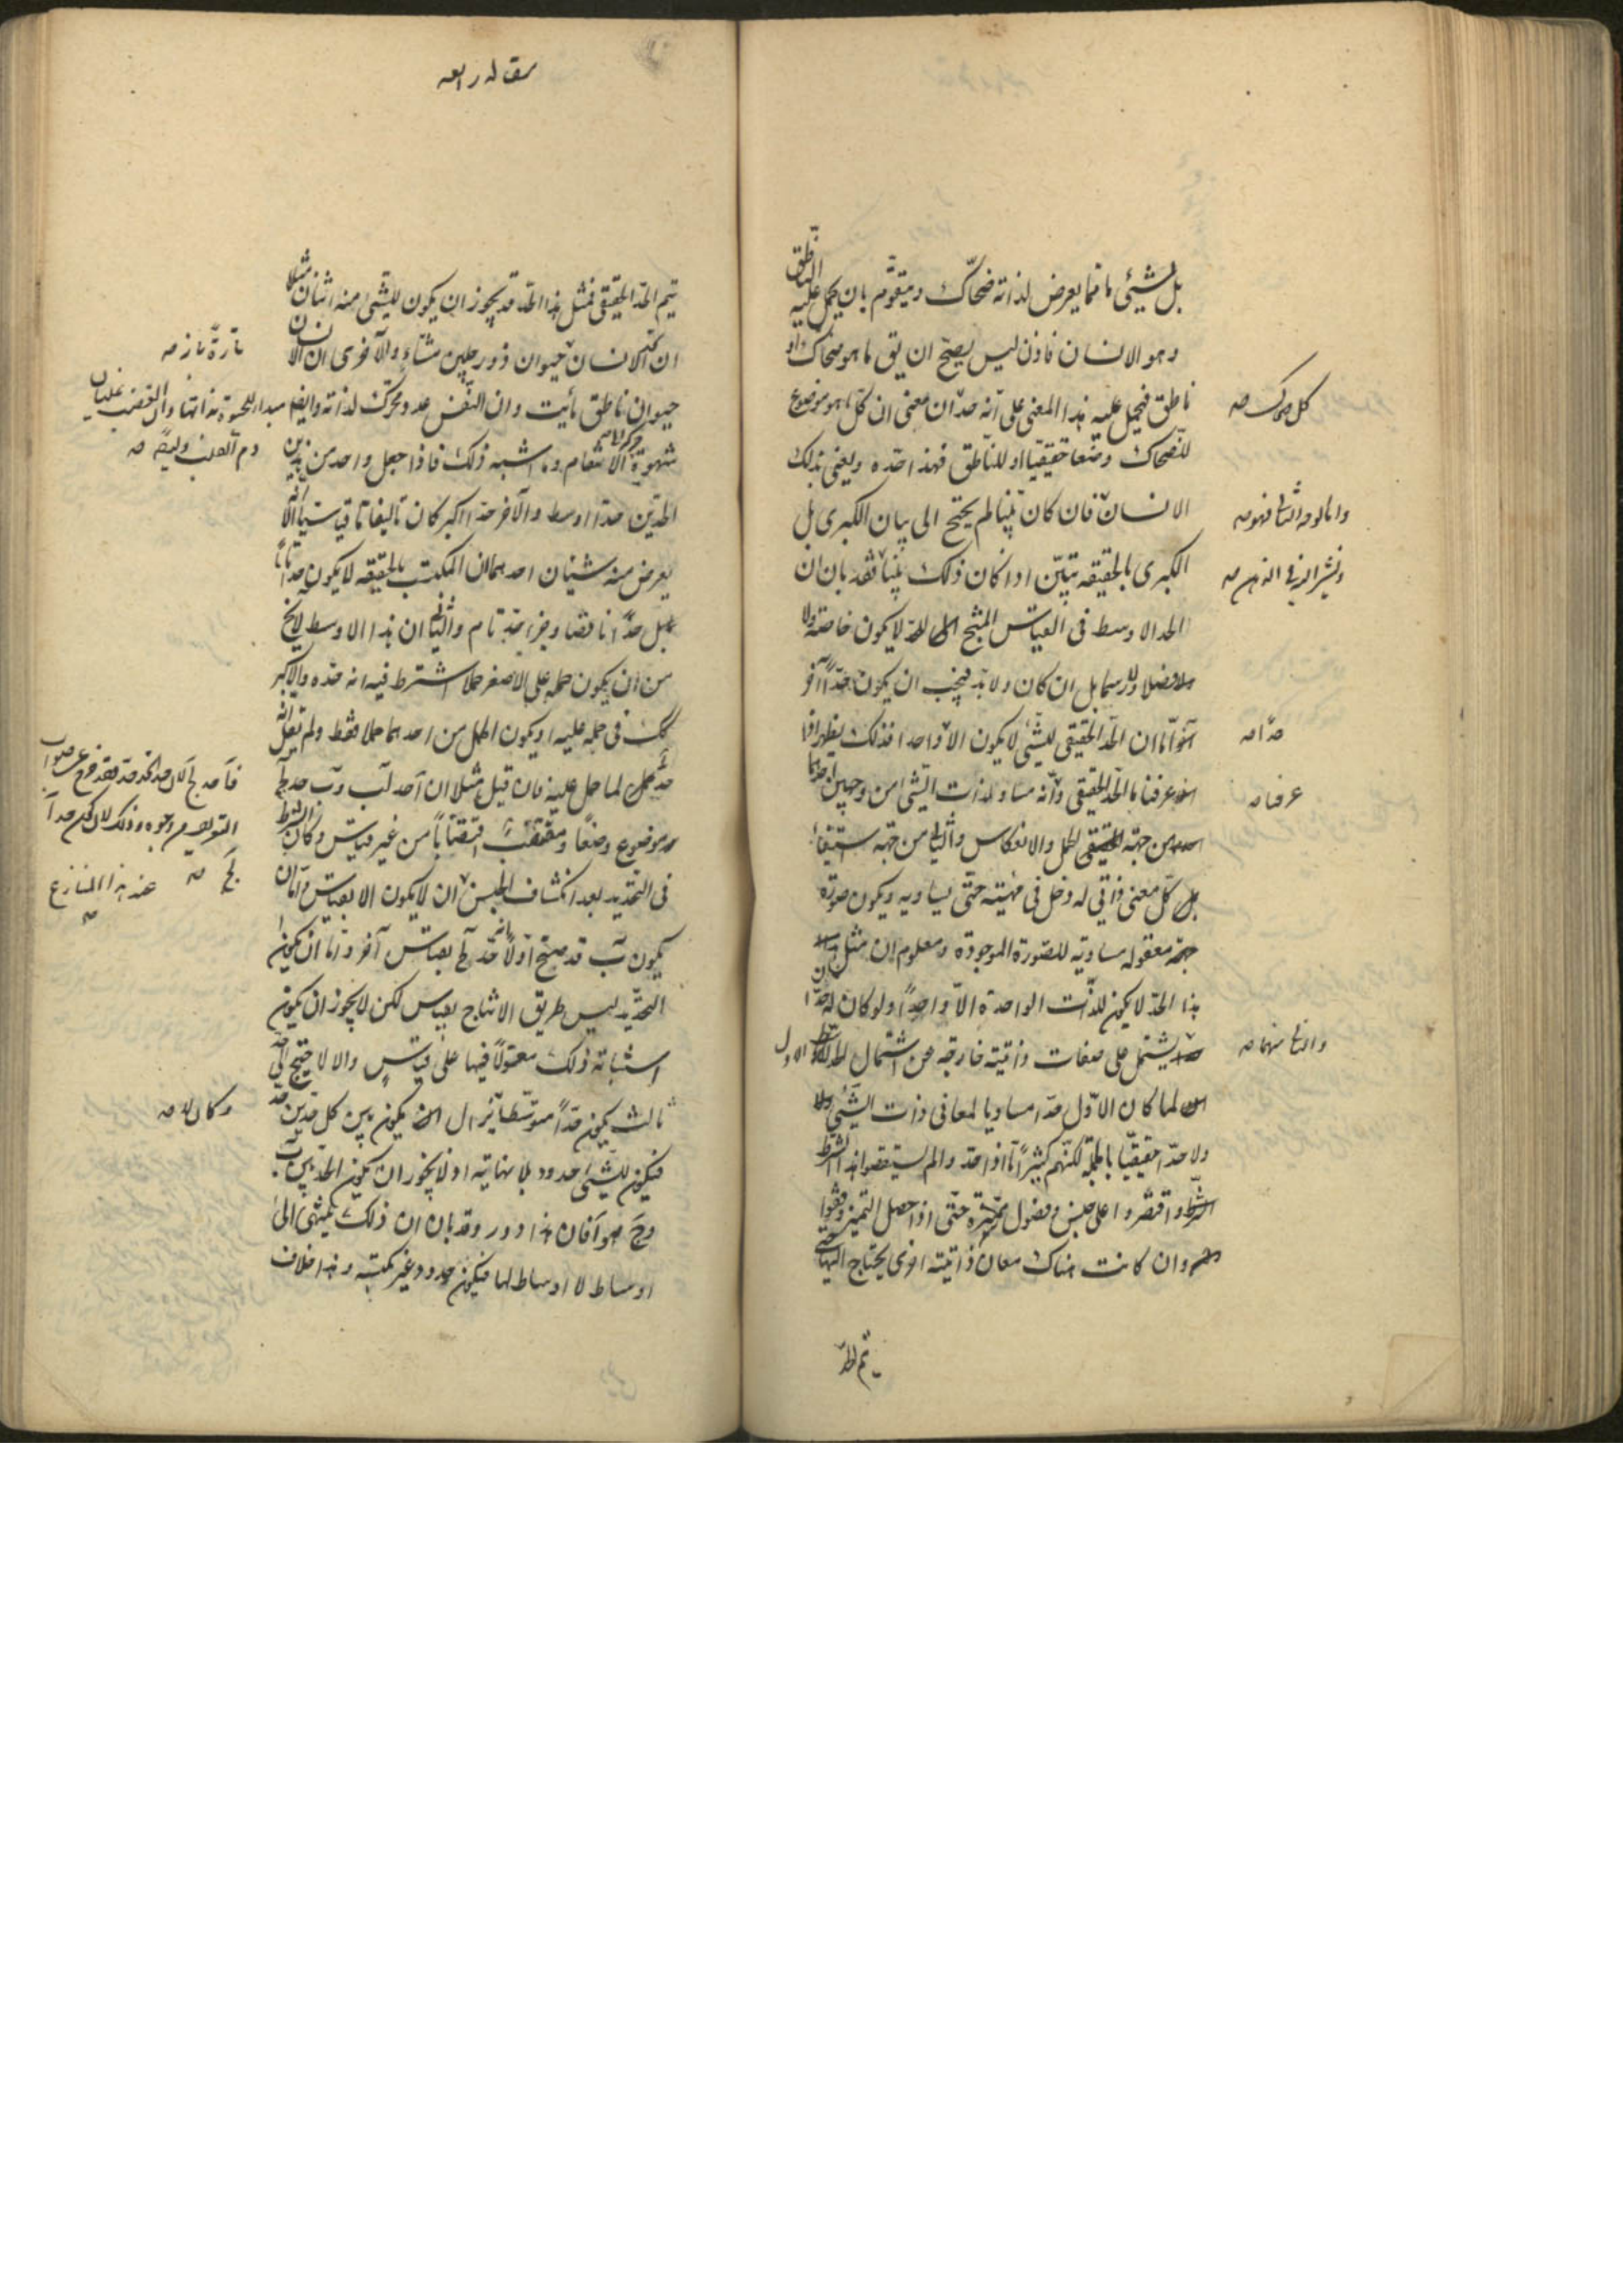 بل لشيئى ما مما يعرض لذاته ضحاك و متقوم بان يحمل عليه الناطق
وهو الانسان فاذن ليس يصح ان يق ما هو ضحاك او
ناطق فيحمل عليه هذا المعنى على انه حد ان معنى ان كل ما هو موضوع
للضحاك وضعا حقيقيا او للناطق فهذا حده ويعنى بذلك
الانسان فان كان بينا لم يحتج الى بيان الكبرى بل
الكبرى بالحقيقه تبين اذا كان ذلك بينا فقد بان ان
الحد الاوسط فى القياس المنتج لا يكون خاصة ولا
فصلا ولا رسما بل ان كان ولا بد فيجب ان يكون حدا آخر
اما ان الحد الحقيقى للشيئى لا يكون الا واحدا فذلك يظهر اذا
عرفنا ما الحد الحقيقى وانه مساو لذات الشيئى من وجهين احدهما
من جهة الحمل والانعكاس والثانى من جهة استيفاء
كل معنى ذاتى له دخل فى مهيته حتى يساويه ويكون صورة
معقوله مساويه للصورة الموجودة ومعلوم ان مثل
هذا الحد لا يكون للذات الواحدة الا واحدا ولو كان له حد
يشتمل على صفات ذاتيته خارجه عن اشتمال الاول
لما كان الاول حدا مساويا لمعانى ذات الشيئى
ولا حدا حقيقيا بالجمله لكنهم كثيرا ما اذا حدوا لم يستقصوا هذا الشرط
واقتصروا على جنس وفصول مميزة حتى اذا حصل التميز وقفوا
وان كانت هناك معان ذاتيته اخرى يحتاج اليها حتى
يتم الحد
كل ضحاك صه
واما لوجه الثانى فهو صه
حدا صه
عرفنا صه
والثانى منهما صه
مقاله رابعه
يتم الحد الحقيقى فمثل هذا الحد قد يجوز ان يكون للشيئى منه اثنان مثلا
ان الانسان حيوان ذو رجلين مشاء والآخرى ان الانسان
حيوان ناطق مائيت وان النفس عدد محرك لذاته وايضا
شهوة الانتقام وما اشبه ذلك فاذا جعل واحد من هذين
الحدين حدا اوسط والآخر حدا اكبر كان تاليفا ما قياسيا الا انه
يعرض منه شيئان احدهما ان المكتسب بالحقيقه لا يكون حدا تاما
بل حدا ناقصا وجزء حد تام والثانى ان هذا الاوسط لا يخ
من ان يكون حمله على الاصغر حملا اشترط فيه انه حده والاكبر
كك فى حمله عليه او يكون الحمل من احدهما حملا فقط ولم يقل انه
حد لما حمل عليه فان قيل مثلا ان آ حد لب وب حد لج
موضوع وضعا ومقتضب اقتضابا من غير قياس وكان الشرط
فى التحديد بعد انكشاف الجنس ان لا يكون الا بقياس فاما ان
يكون ب قد صح اولا انه حد لج بقياس آخر واما ان يكون
التحديد ليس طريق الانتاج بقياس لكن لا يجوز ان يكون
اثباته ذلك معولا فيها على قياس والا لاحتيج الى حد
ثالث يكون حدا متوسطا يزال يكون بين كل حدين حد
فيكون للشيئى حدود بلا نهاية اذ لا يجوز ان يكون الحد بين ب
وج هو آ فان هذا دور وقد بان ان ذلك ينتهى الى
اوساط لا اوساط لها فيكون حدود غير مكتسبه وهذا خلاف
تارة تاره صه
مبدا للحيوة بذاتها وان الغضب غليان
دم القلب وايضا صه
عند هذا المنازع
صه
وكمالا صه